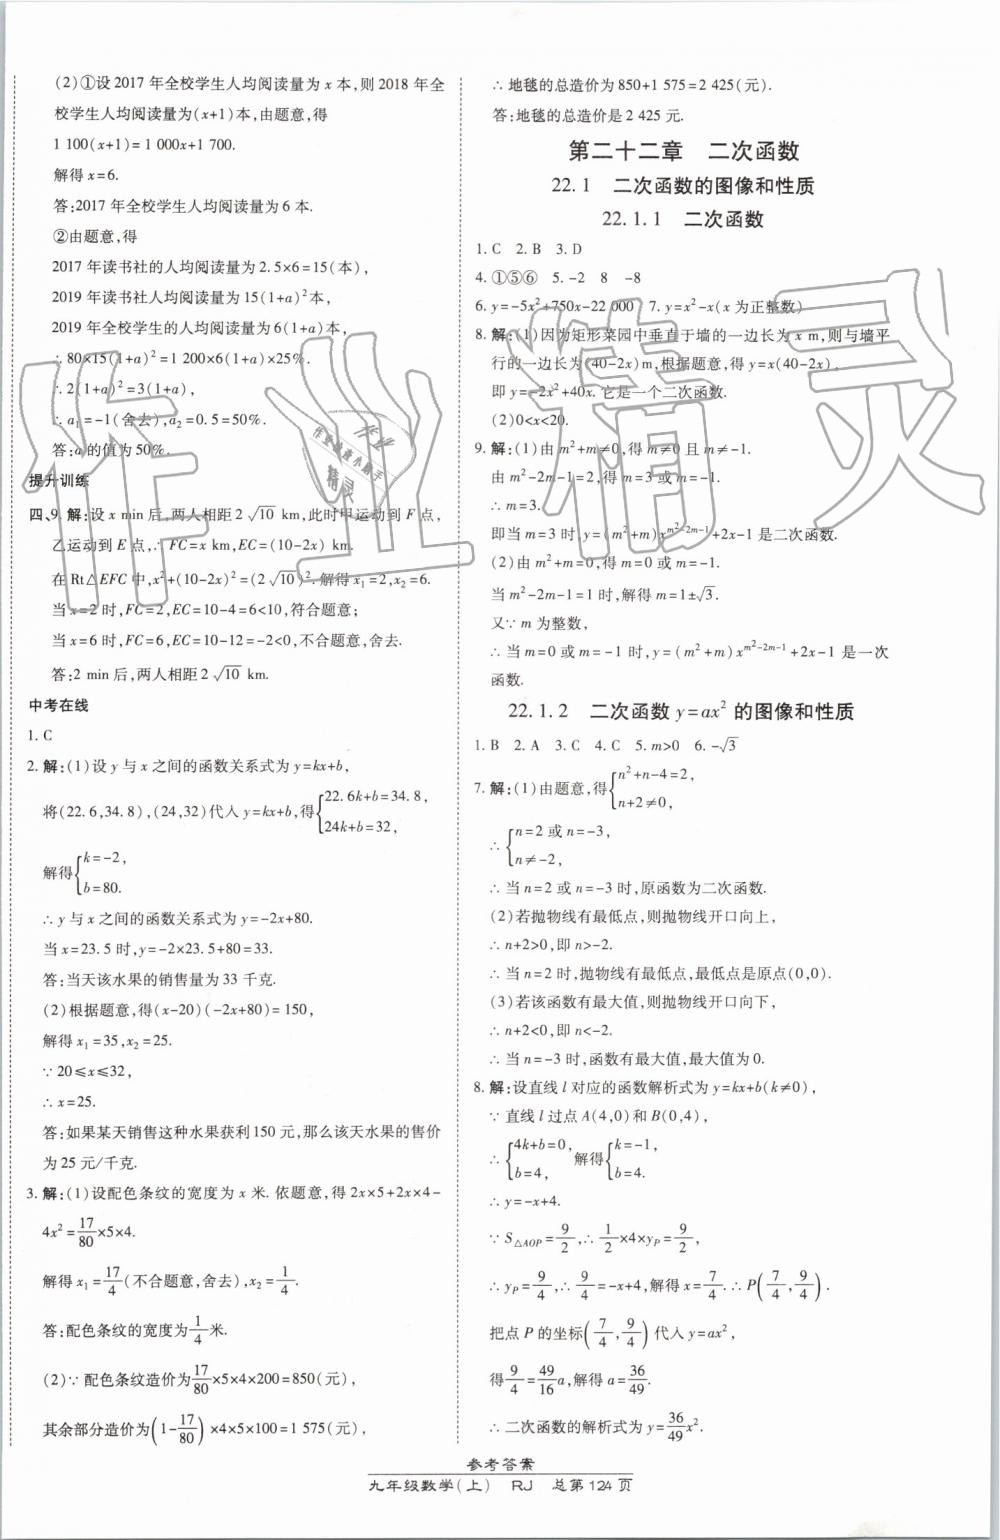 (2)①设 2017 年全校学生人均阅读量为 x 本,则 2018 年全
校学生人均阅读量为(x+1)本,由题意,得
1 100(x+1)=1 000x+1 700.
解得 x=6.
答:2017 年全校学生人均阅读量为 6 本.
②由题意,得
2017 年读书社的人均阅读量为 2.5×6=15(本),
2019 年读书社人均阅读量为 15(1+a)²本,
2019 年全校学生的人均阅读量为 6(1+a)本,
∴80×15(1+a)²=1 200×6(1+a)×25%.
∴2(1+a)²=3(1+a),
∴a₁=-1(舍去),a₂=0.5=50%.
答:a 的值为 50%.
提升训练
四、9. 解:设 x min 后,两人相距 2√10 km,此时甲运动到 F 点,
乙运动到 E 点,∴FC=x km,EC=(10-2x) km.
在 Rt△EFC 中,x²+(10-2x)²=(2√10)².解得 x₁=2,x₂=6.
当 x=2 时,FC=2,EC=10-4=6<10,符合题意;
当 x=6 时,FC=6,EC=10-12=-2<0,不合题意,舍去.
答:2 min 后,两人相距 2√10 km.
中考在线
1. C
2. 解:(1)设 y 与 x 之间的函数关系式为 y=kx+b,
将(22.6,34.8),(24,32)代入 y=kx+b,得{22.6k+b=34.8,
24k+b=32,
解得{k=-2,
b=80.
∴y 与 x 之间的函数关系式为 y=-2x+80.
当 x=23.5 时,y=-2×23.5+80=33.
答:当天该水果的销售量为 33 千克.
(2)根据题意,得(x-20)(-2x+80)=150,
解得 x₁=35,x₂=25.
∵20≤x≤32,
∴x=25.
答:如果某天销售这种水果获利 150 元,那么该天水果的售价
为 25 元/千克.
3. 解:(1)设配色条纹的宽度为 x 米. 依题意,得 2x×5+2x×4-
4x²=17/80×5×4.
解得 x₁=17/4(不合题意,舍去),x₂=1/4.
答:配色条纹的宽度为1/4米.
(2)∵配色条纹造价为17/80×5×4×200=850(元),
其余部分造价为(1-17/80)×4×5×100=1 575(元),
∴地毯的总造价为 850+1 575=2 425(元).
答:地毯的总造价是 2 425 元.
第二十二章 二次函数
22.1 二次函数的图像和性质
22.1.1 二次函数
1. C 2. B 3. D
4. ①⑤⑥ 5. -2 8 -8
6. y=-5x²+750x-22 000 7. y=x²-x(x 为正整数)
8. 解:(1)因为矩形菜园中垂直于墙的一边长为 x m,则与墙平
行的一边长为(40-2x)m,根据题意,得 y=x(40-2x),
即 y=-2x²+40x. 它是一个二次函数.
(2)0<x<20.
9. 解:(1)由 m²+m≠0,得 m≠0 且 m≠-1.
由 m²-2m-1=2,得 m=3 或 m=-1.
∴m=3.
即当 m=3 时,y=(m²+m)x^(m²-2m-1)+2x-1 是二次函数.
(2)由 m²+m=0,得 m=0 或 m=-1.
当 m²-2m-1=1 时,解得 m=1±√3.
又∵m 为整数,
∴当 m=0 或 m=-1 时,y=(m²+m)x^(m²-2m-1)+2x-1 是一次
函数.
22.1.2 二次函数 y=ax² 的图像和性质
1. B 2. A 3. C 4. C 5. m>0 6. -√3
7. 解:(1)由题意,得{n²+n-4=2,
n+2≠0,
∴{n=2 或 n=-3,
n≠-2,
∴当 n=2 或 n=-3 时,原函数为二次函数.
(2)若抛物线有最低点,则抛物线开口向上,
∴n+2>0,即 n>-2.
∴当 n=2 时,抛物线有最低点,最低点是原点(0,0).
(3)若该函数有最大值,则抛物线开口向下,
∴n+2<0,即 n<-2.
∴当 n=-3 时,函数有最大值,最大值为 0.
8. 解:设直线 l 对应的函数解析式为 y=kx+b(k≠0),
∵直线 l 过点 A(4,0)和 B(0,4),
∴{4k+b=0,
b=4,
解得{k=-1,
b=4.
∴y=-x+4.
∵S△AOP=9/2,∴1/2×4×yP=9/2,
∴yP=9/4,∴9/4=-x+4,解得 x=7/4.∴P(7/4,9/4).
把点 P 的坐标(7/4,9/4)代入 y=ax²,
得9/4=49/16a,解得 a=36/49.
∴二次函数的解析式为 y=36/49x².
参考答案
九年级数学(上) RJ 总第 124 页
作业精灵
作业精灵